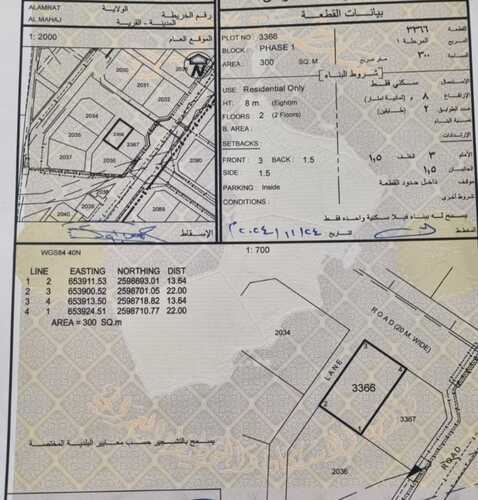 ALAMRAT
الولاية
رقم الخريطة
AL MAHAJ
المدينة - القرية
1: 2000
الموقع العام
بيانات القطعة
PLOT NO 3366
٣٣٦٦ القطعة
BLOCK : PHASE 1
المرحلة ١ المربع
AREA : 300 SQ. M
متر مربع ٣٠٠
شروط البناء
USE: Residential Only
سكني فقط الاستعمال
HT: 8 m (Eighom
٨ (ثمانية امتار) الارتفاع
FLOORS 2 (2 Floors)
٢ (طابقين) عدد الطوابق
B. AREA :
SETBACKS
الارتدادات
FRONT : 3 BACK : 1.5
الأمام ٣ الخلف ١,٥
SIDE : 1.5
الجانبين ١,٥
PARKING : Inside
داخل حدود القطعة موقف
CONDITIONS :
شروط أخرى
يسمح له ببناء فيلا سكنية واحده فقط
التاريخ
المخطط
الإسقاط
2030
2031
2032
2033
2034
2035
2036
3366
3367
2037
2038
2039
2040
2090
WGS84 40N
1: 700
LINE EASTING NORTHING DIST
1 2 653911.53 2598693.01 13.64
2 3 653900.52 2598701.05 22.00
3 4 653913.50 2598718.82 13.64
4 1 653924.51 2598710.77 22.00
AREA = 300 SQ.m
2034
LANE
ROAD (20 M. WIDE)
3
4
3366
2
1
3367
2036
ROAD
يسمح بالتشجير حسب معايير البلدية المختصة